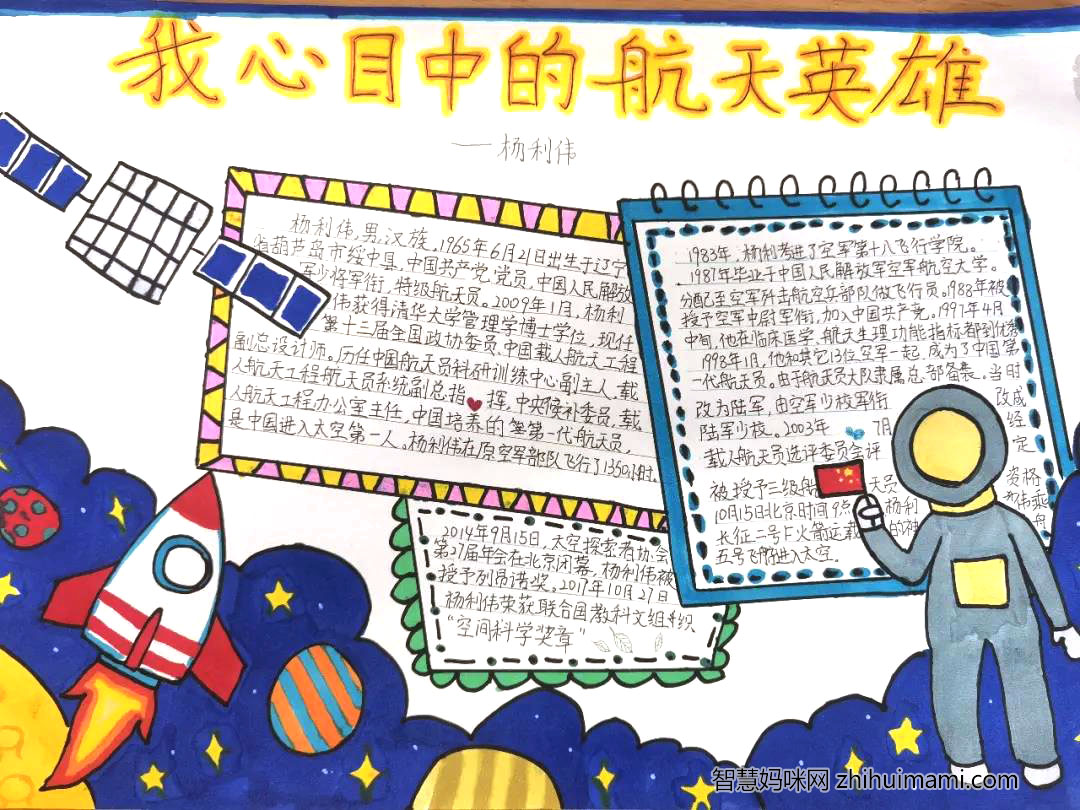 我心目中的航天英雄
——杨利伟
杨利伟,男,汉族,1965年6月21日出生于辽宁
省葫芦岛市绥中县,中国共产党党员,中国人民解放
军少将军衔,特级航天员。2009年1月,杨利
伟获得清华大学管理学博士学位,现任
第十三届全国政协委员,中国载人航天工程
副总设计师。历任中国航天员科研训练中心副主人,载
人航天工程航天员系统副总指挥,中央候补委员,载
人航天工程办公室主任,中国培养的第一代航天员,
是中国进入太空第一人。杨利伟在原空军部队飞行了1350小时
1983年,杨利考进了空军第十八飞行学院。
1987年毕业于中国人民解放军空军航空大学。
分配至空军歼击航空兵部队做飞行员。1988年被
授予空军中尉军衔,加入中国共产党。1997年4月
中旬,他在临床医学、航天生理功能指标都到优秀
1998年1月,他和其它13位空军一起,成为了中国第
一代航天员。由于航天员大队隶属总部备装。当时
改为陆军,由空军少校军衔 改成
陆军少校。2003年 7月 经
载人航天员选评委员会评 定
被授予三级航 天员 资格
10月15日北京时间9点 杨利 伟乘
长征二号F火箭运载的神 舟
五号飞船进入太空。
2014年9月15日,太空探索者协会
第27届年会在北京闭幕,杨利伟被
授予列昂诺奖。2017年10月27日
杨利伟荣获联合国教科文组织
“空间科学奖章”
智慧妈咪网 zhihuimami.com